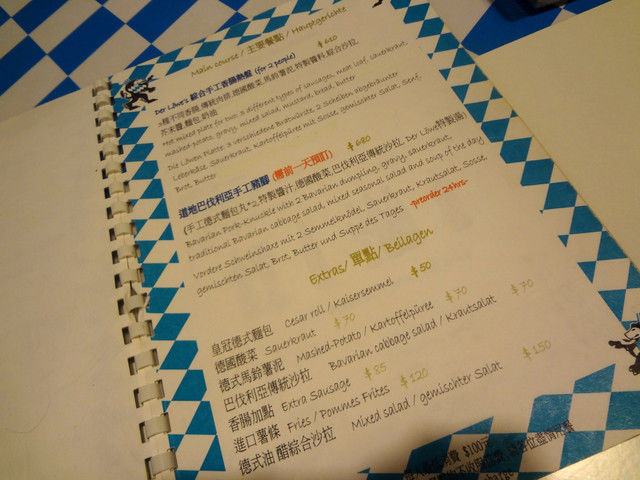 Main course / 主要餐點 / Hauptgerichte
Der Löwe's 綜合手工香腸熱盤 (for 2 people) $ 610
3種不同香腸, 傳統肉排, 德國酸菜, 馬鈴薯泥, 特製醬料, 綜合沙拉
芥末醬, 麵包, 奶油
Hot mixed plate for two: 3 different types of sausages, meat loaf, sauerkraut,
mashed-potato, gravy, mixed salad, mustard, bread, butter
Die Löwen Platte: 3 verschiedene Bratwürste, 2 Scheiben abgebräunter
Leberkäse, Sauerkraut, Kartoffelpüree mit Sosse, gemischter Salat, Senf,
Brot, Butter
道地巴伐利亞手工豬腳 (需前一天預訂) $ 680
(手工德式麵包丸*2, 特製醬汁, 德國酸菜, 巴伐利亞傳統沙拉, Der Löwe特製湯)
Bavarian Pork-Knuckle with 2 Bavarian dumpling, gravy, sauerkraut,
traditional Bavarian cabbage salad, mixed seasonal salad and soup of the day
Vordere Schweinshaxe mit 2 Semmelknödel, Sauerkraut, Krautsalat, Sosse,
gemischten Salat, Brot, Butter und Suppe des Tages preorder 24hrs-
Extras/ 單點/ Beilagen
皇冠德式麵包 Cesar roll / Kaisersemmel $ 50
德國酸菜 Sauerkraut $ 70
德式馬鈴薯泥 Mashed-Potato / Kartoffelpüree $ 70
巴伐利亞傳統沙拉 Bavarian cabbage salad / Krautsalat $ 70
香腸加點 Extra Sausage $ 85
進口薯條 Fries / Pommes Frites $ 120
德式油醋綜合沙拉 Mixed salad / gemischter Salat $ 150
$100